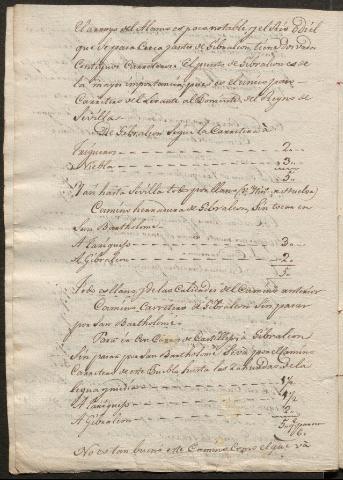 El arroyo del Alamo es poco notable, y el Rio Odiel
que se pasa cerca antes de Gibraleon tiene dos vados
contiguos Carreteros. El puesto de Gibraleon es de
la mayor importancia, pues es el unico para
Carretas del Levante al Poniente del Reyno de
Sevilla.
De Gibraleon sigue la Carretera á
Trigueros 2..
Niebla 3..
5..
Y an hasta Sevilla todo por llano
Camino herradura de Gibraleon, sin tocar en
San Bartholome.
A 3..
A Gibraleon 2..
5..
Todo es llano, y de las Calidades del Camino anterior
Camino Carretero á Gibraleon sin pasar
por San Bartholomé.
Para ir con Carros de Castillejos á Gibraleon
sin pasar por San Bartholomé se va por el Camino
Carretero de este Pueblo hasta las de la
legua y media 1 1/2
A 1 1/2
A Gibraleon 2..
No es tan bueno este Camino como el que va